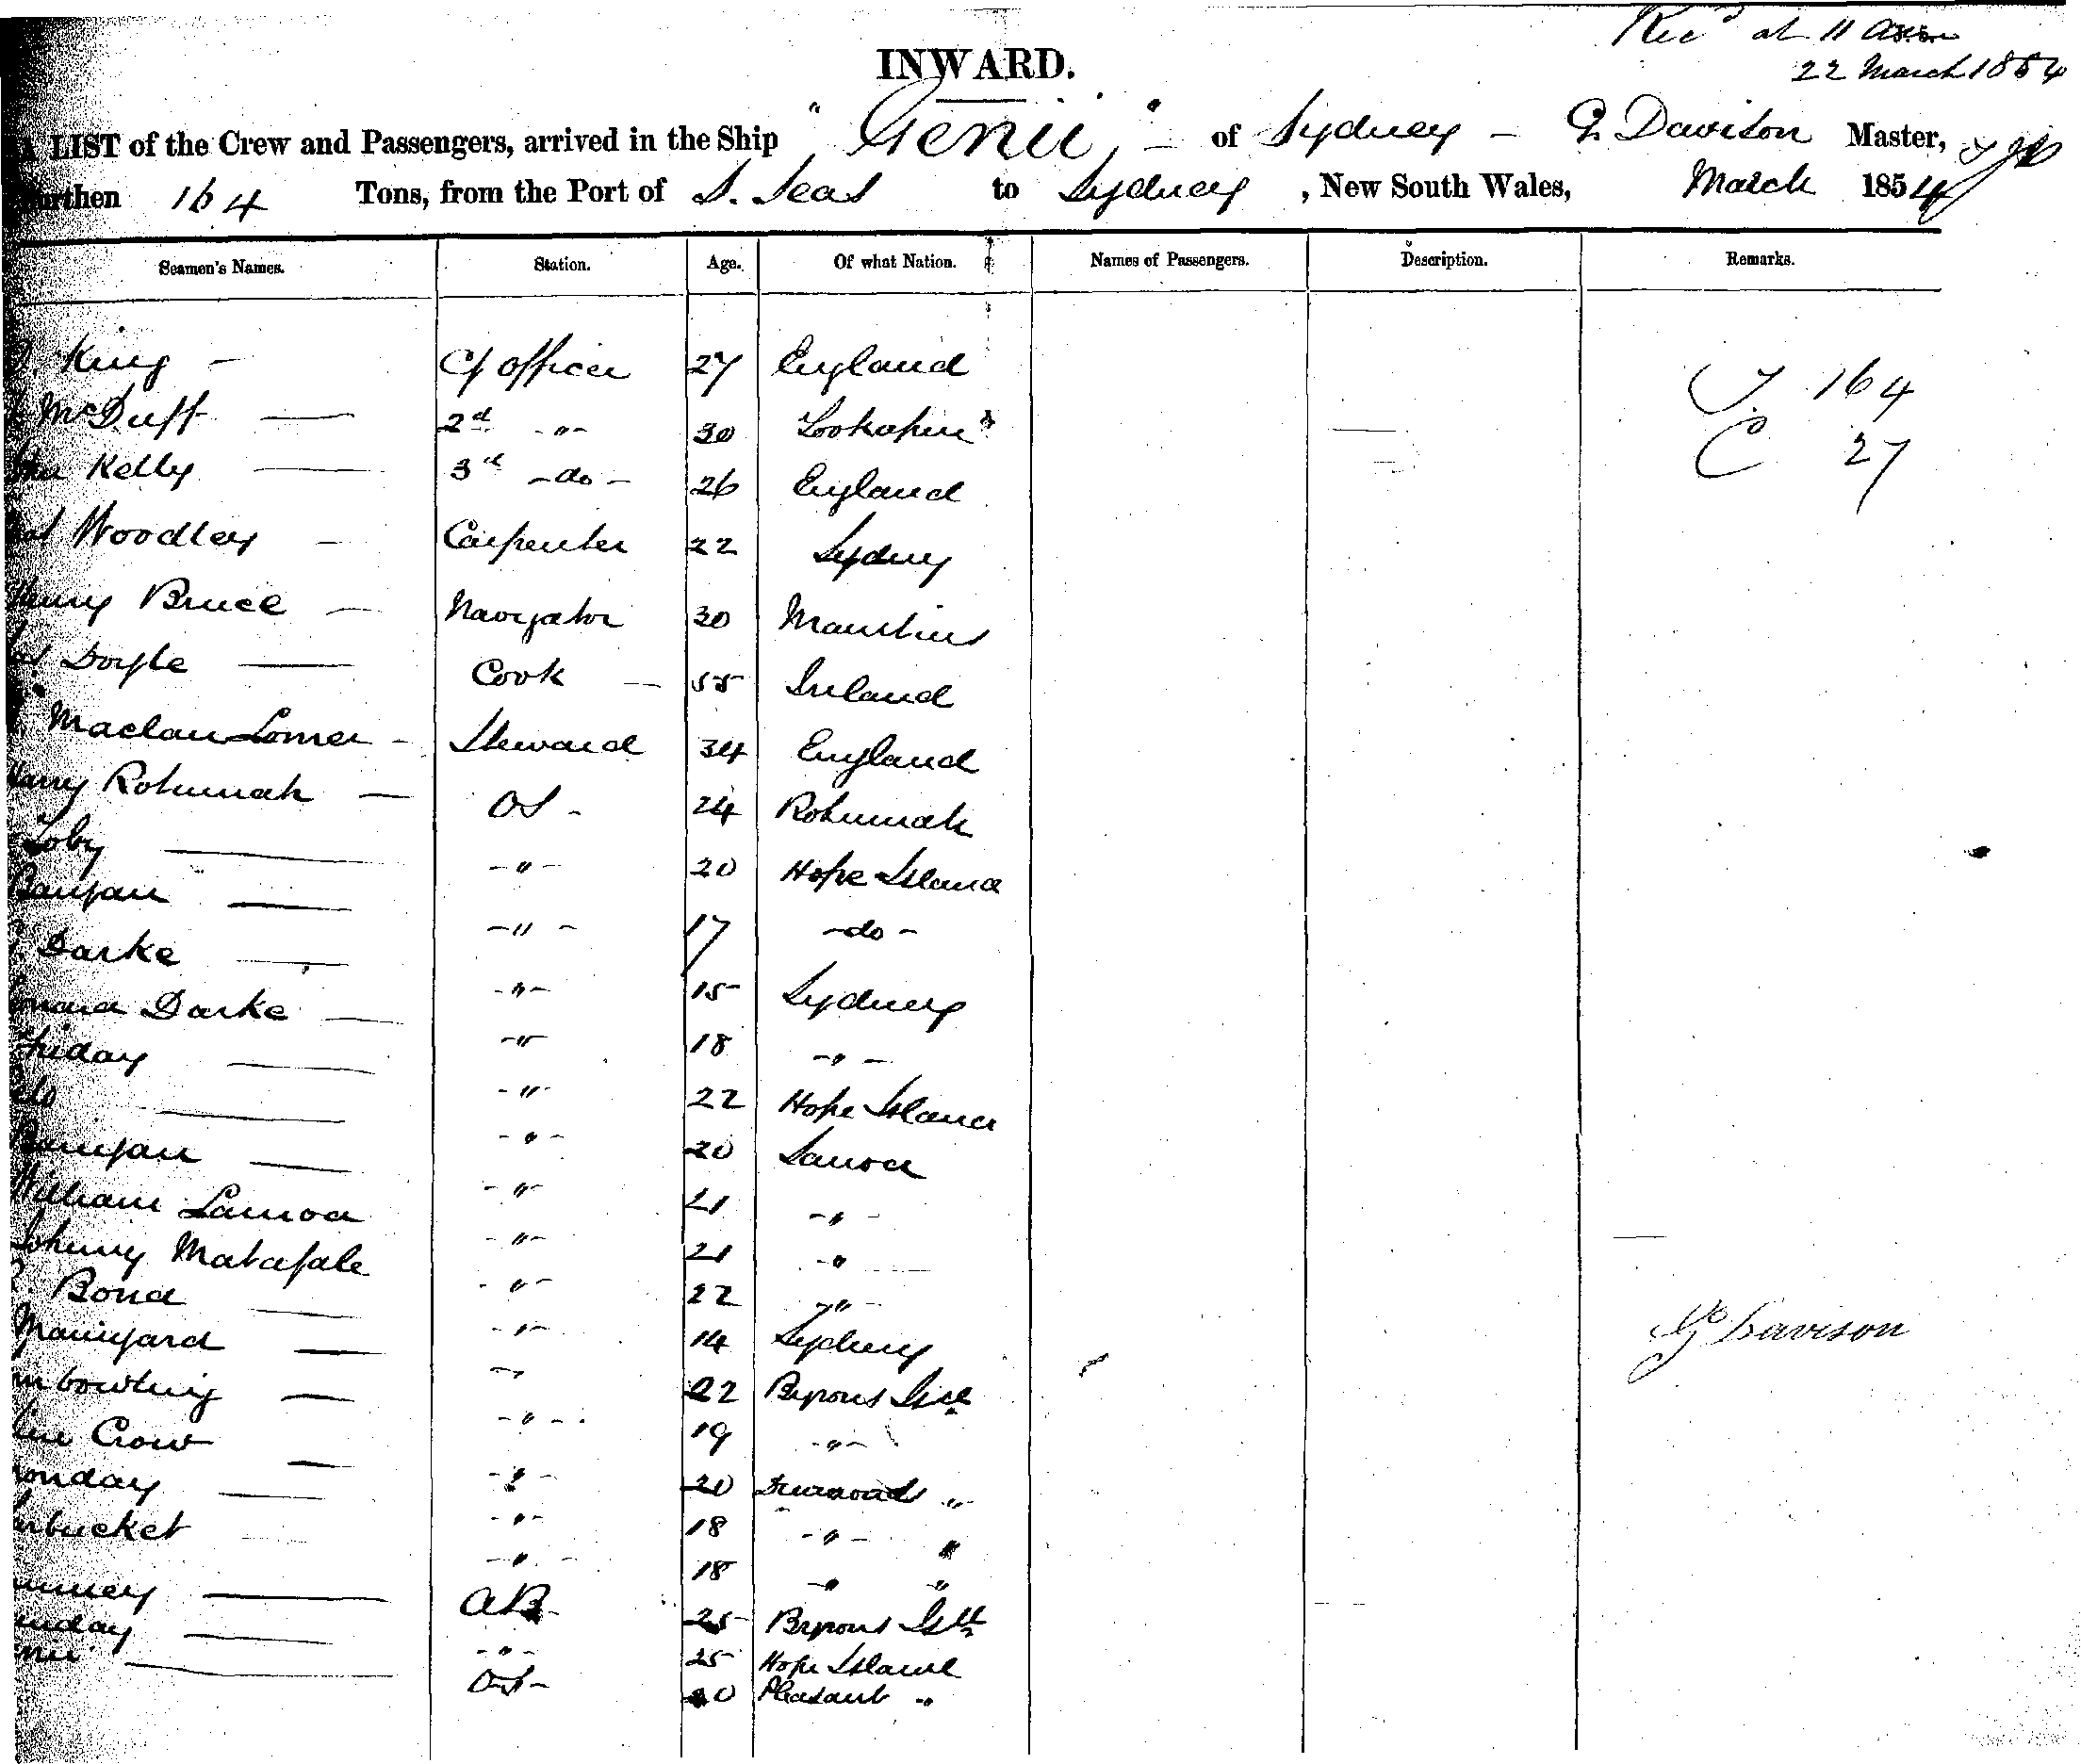 Recd at 11 a.m.
22 March 1854
INWARD.
A LIST of the Crew and Passengers, arrived in the Ship "Genii" of Sydney - G Davison Master,
Burthen 164 Tons, from the Port of S. Seas to Sydney, New South Wales, March 1854
Seamen's Names. Station. Age. Of what Nation. Names of Passengers. Description. Remarks.
King - Cf officer 27 England T. 164
McDuff 2d -"- 30 C 27
Kelly 3rd -do- 26 England
Woodley - Carpenter 22 Sydney
Henry Bruce - Navigator 30 Mauritius
Doyle Cook - 55 Ireland
Steward 34 England
Harry Rotumah - OS - 24 Rotumah
Toby -"- 20 Hope Island
Banyan -"- 17 -do-
Darke -"- 15 Sydney
Darke -"- 18 -"-
Friday -"- 22 Hope Island
-"- 20 Samoa
Banyan -"- 21 -"-
William Samoa -"- 21 -"
Johnny Matafale -"- 22 -"-
Bond -"- 14 Sydney
G Davison
-"- 22 Byrons Isle
bowling -"- 19 -"-
Crow -"- 20
onday -"- 18 -"- "
bucket -"- 18 -"- "
AB 25 Byrons Isld
unday -"- 25 Hope Island
OS - 20 Pleasant "